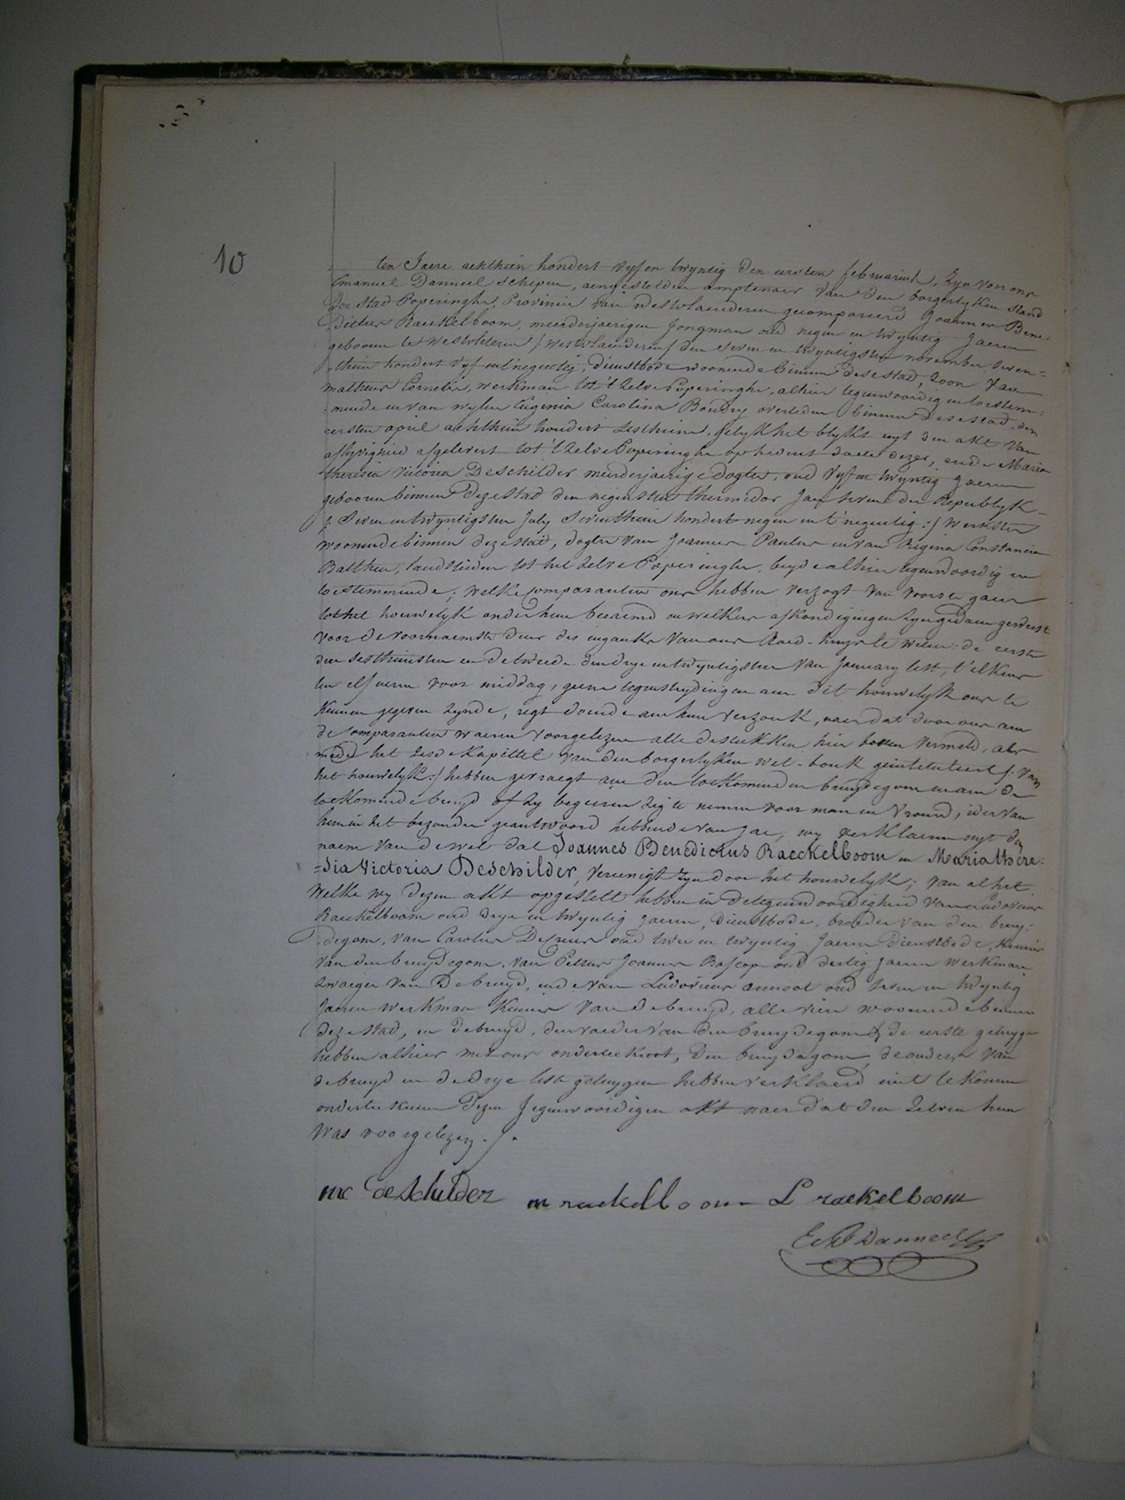 10
ten Jaere achthien hondert vyf en twyntig den eersten februarius, zyn voor ons
Emanuel Danneel schepen, aengestelden amptenaer van den borgerlyken stand
der stad Poperinghe, Provincie van Westvlaenderen gecompareerd Joannes Bene-
dictus Raeckelboom, meerderjaerigen jongman oud negen en twyntig jaeren
gebooren tot Westvleteren /: Westvlaenderen :/ den seven en twyntigsten november seven-
thien hondert vyf en tnegentig, dienstbode woonende binnen deze stad, zoon van
matheus Cornelis, werkman tot 't zelve Poperinghe, alhier tegenwoordig en toestem-
mende en van wylen Eugenia Carolina Boudry overleden binnen deze stad, den
eersten april achthien hondert sesthiene, gelyk het blykt uyt den akt van
aflyvigheid afgelevert tot 't zelve Poperinghe op heden date dezer, ende Maria
theresia victoria Deschilder meerderjaerige dogter, oud vyf en twyntig jaeren
gebooren binnen deze stad den negensten thermidor jaer seven der Republyk
/: seven en twyntigsten July seventhien hondert negen en t'negentig :/ werkster
woonende binnen deze stad, dogter van Joannes Paulus en van Regina Constancia
Batthen, landslieden tot het zelve Poperinghe, beyde alhier tegenwoordig en
toestemmende; welke comparanten ons hebben verzogt van voorts te gaen
tot het houwelyk onder hun beraemd en welkers afkondigingen zyn gedaen geweest
voor de voornaemste deur des inganks van ons Raed-huys te weten: de eerste
den sesthiensten en de tweede den drye en twyntigsten van January lest, t'elkens
ten elf uren voor middag, geene tegenstrydingen aen dit houwelyk ons te
kennen gegeven zynde, regt doende aen hun verzoek, naer dat door ons aen
de comparanten waeren voorgelezen alle de stukken hier boven vermeld, als
mede het sesde kapittel van den borgerlyken wet-bouk geintituleert /: van
het houwelyk :/ hebben gevraegt aen den toekomenden bruydegom en aen de
toekomende bruyd of zy begeeren zig te nemen voor man en vrouw; ider van
hun in het bezonder geantwoord hebbende van jae, wy verklaeren uyt den
naem van de wet dat Joannes Benedictus Raeckelboom en Maria there-
sia Victoria Deschilder, vereenigt zyn door het houwelyk; van al het
welke wy dezen akt opgestelt hebben in de tegenwoordigheid van Ludovicus
Raeckelboom oud drye en twyntig jaeren, dienstbode, broeder van den bruy-
degom, van Carolus Desmer oud twee en twyntig jaeren dienstbode, kennis
van den bruydegom, van Petrus Joannes Bascop oud dertig jaeren werkman
zwaeger van de bruyd, ende van Ludovicus annoot oud seven en twyntig
jaeren werkman kennis van de bruyd, alle vier woonende binnen
deze stad, en de bruyd, den vaeder van den bruydegom & de eerste getuyge
hebben alhier met ons onderteekent, den bruydegom, de ouders van
de bruyd en de drye leste getuygen hebben verklaerd niet te konnen
onderteekenen dezen tegenwoordigen akt naer dat den zelven hun
was voorgelezen.
mt deschilder m raekelboom L raekelboom
E Danneel